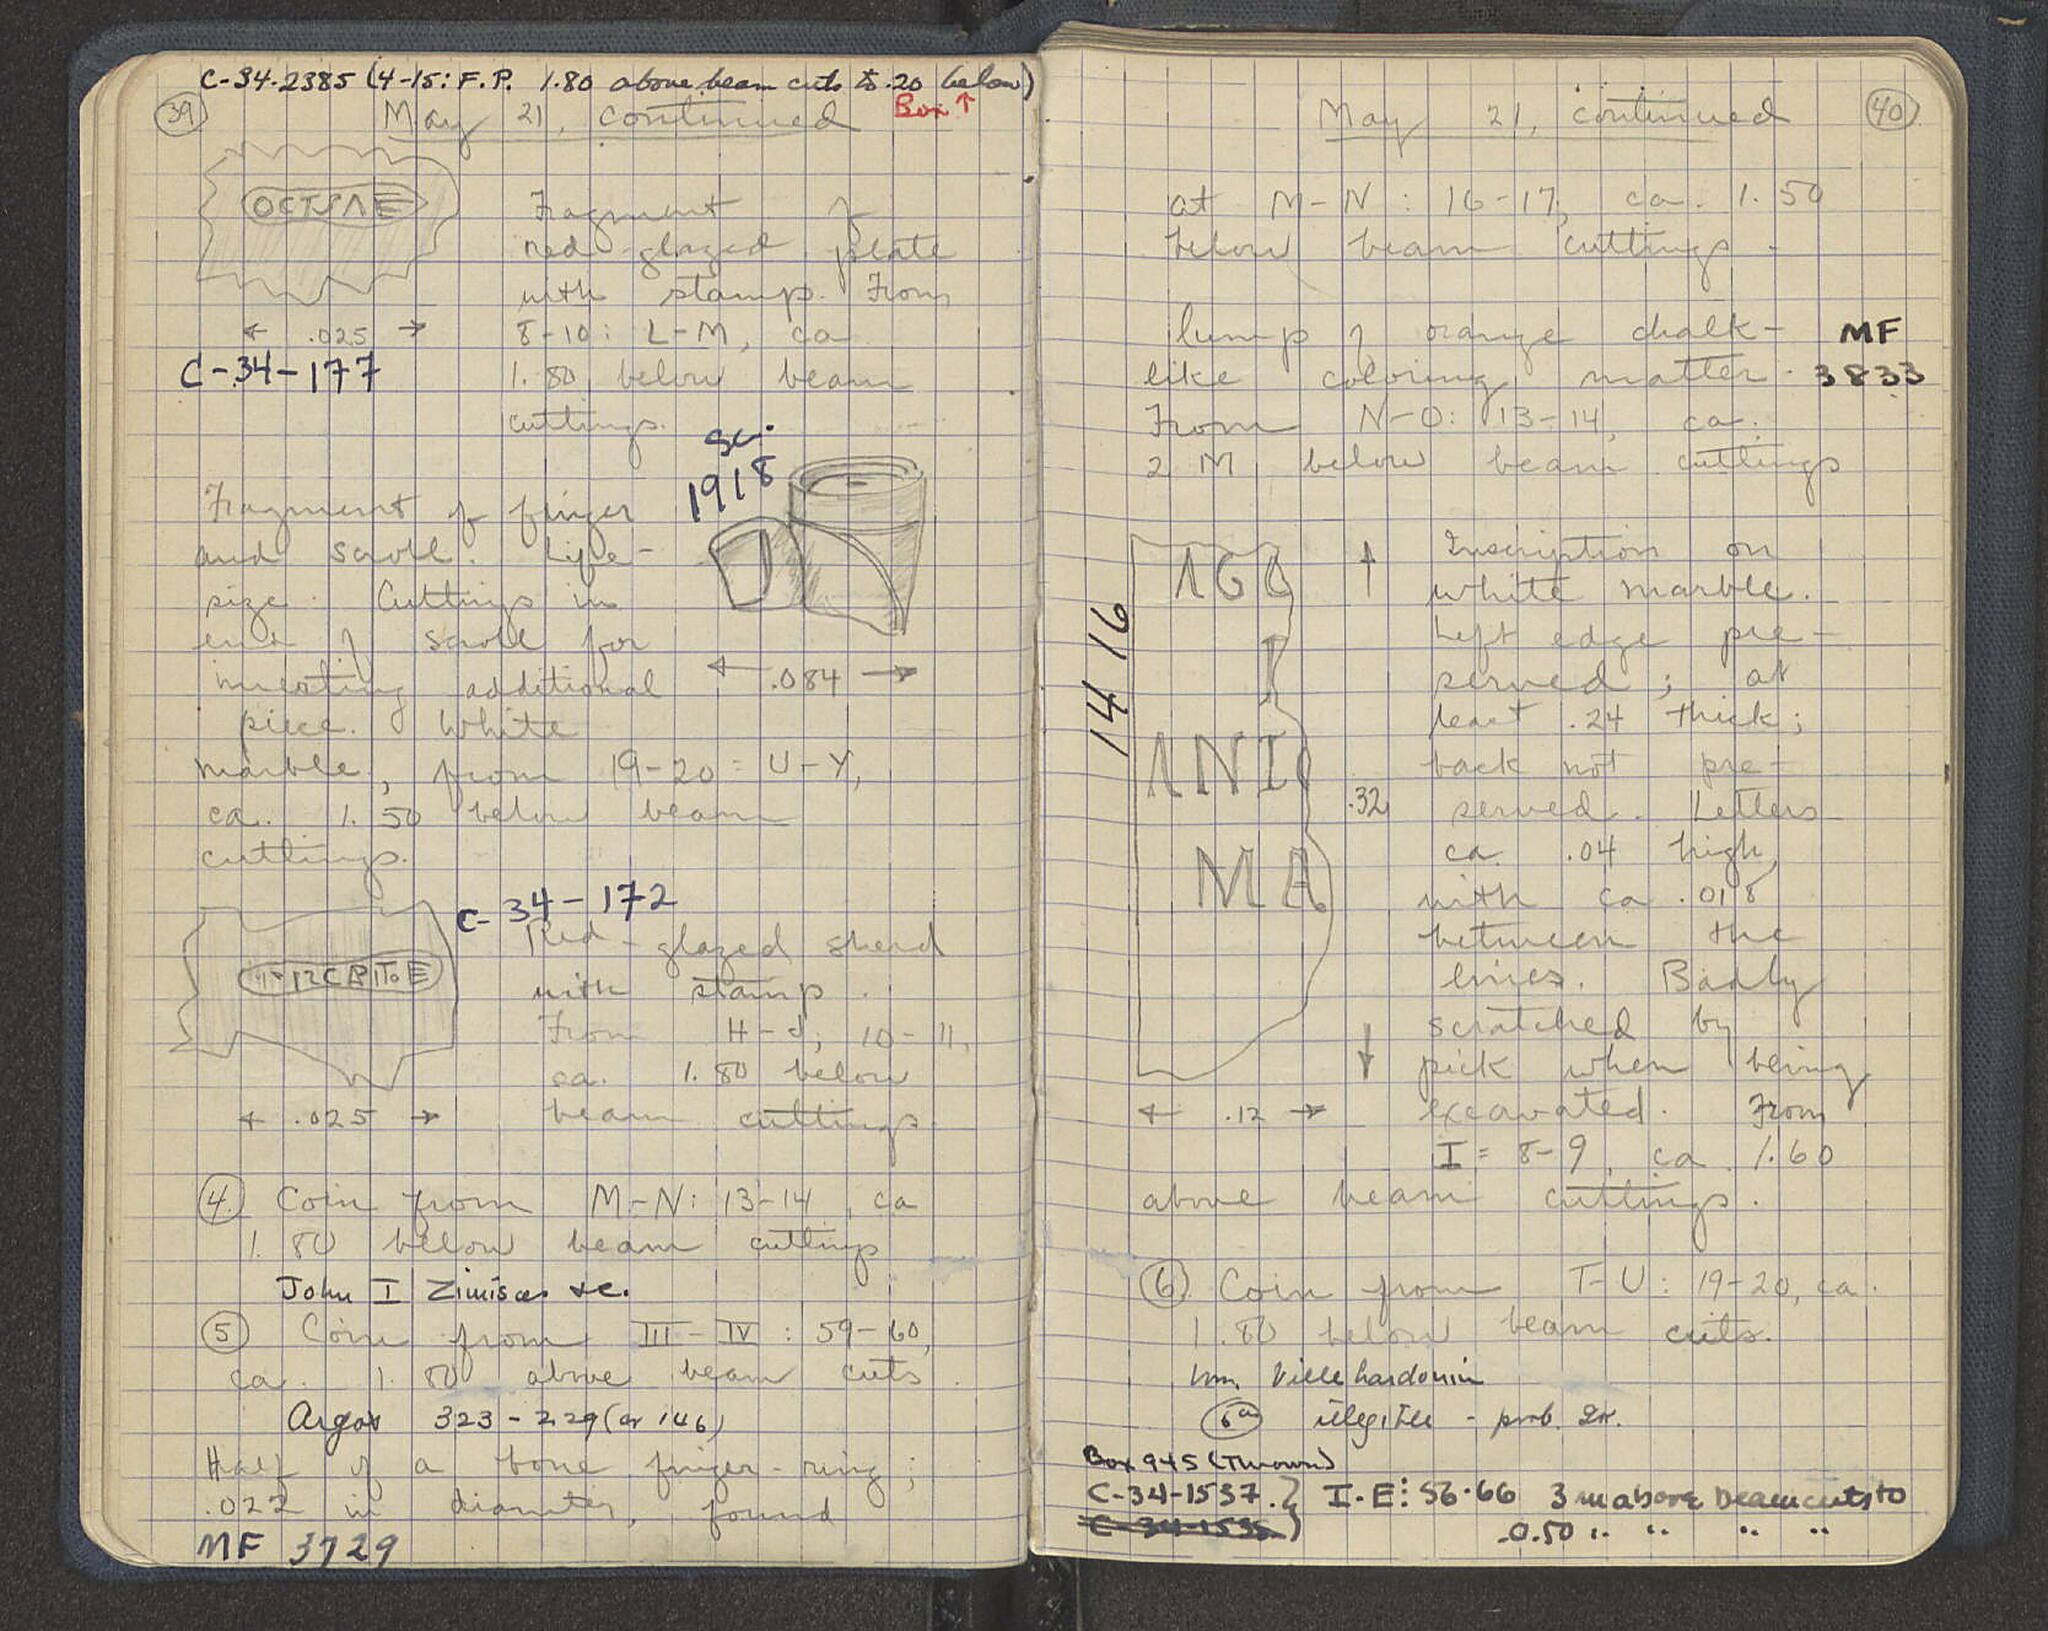 C-34-2385 (4-15: F.P. 1.80 above beam cuts to .20 below)
Box ↑
39
May 21, continued
OCTSAE
Fragment of
red-glazed plate
with stamp. From
.025
8-10: L-M, ca
C-34-177
1.80 below beam
cuttings.
Sc.
1918
Fragment of finger
and scroll. Life-
size. Cuttings in
end of scroll for
inserting additional
.084
piece. White
marble, from 19-20 = U-Y,
ca. 1.50 below beam
cuttings.
C-34-172
Red-glazed sherd
with stamp.
From H-J; 10-11,
ca. 1.80 below
.025
beam cuttings
4 Coin from M-N: 13-14, ca
1.80 below beam cuttings
John I Zimisces &c.
5 Coin from III-IV: 59-60,
ca. 1.80 above beam cuts.
Argos 323-229 (or 146)
Half of a bone finger-ring;
.022 in diameter, found
MF 3729
May 21, continued
40
at M-N: 16-17, ca. 1.50
below beam cuttings.
lump of orange chalk-
MF
like coloring matter.
3833
From N-O: 13-14, ca.
2 M below beam cuttings
14 16
AGO
I
ANIC
MA
.32
.12
Inscription on
white marble.
Left edge pre-
served; at
least .24 thick;
back not pre-
served. Letters
ca. .04 high,
with ca .018
between the
lines. Badly
scratched by
pick when being
excavated. From
I = 8-9, ca. 1.60
above beam cuttings.
6 Coin from T-U: 19-20, ca.
1.80 below beam cuts.
Wm. Villehardouin
6a illegible - prob. Gr.
Box 945 (Thrown)
C-34-1537. } I-E: 56-66 3 m above beam cuts to
C-34-1535 )
-0.50 " " " "